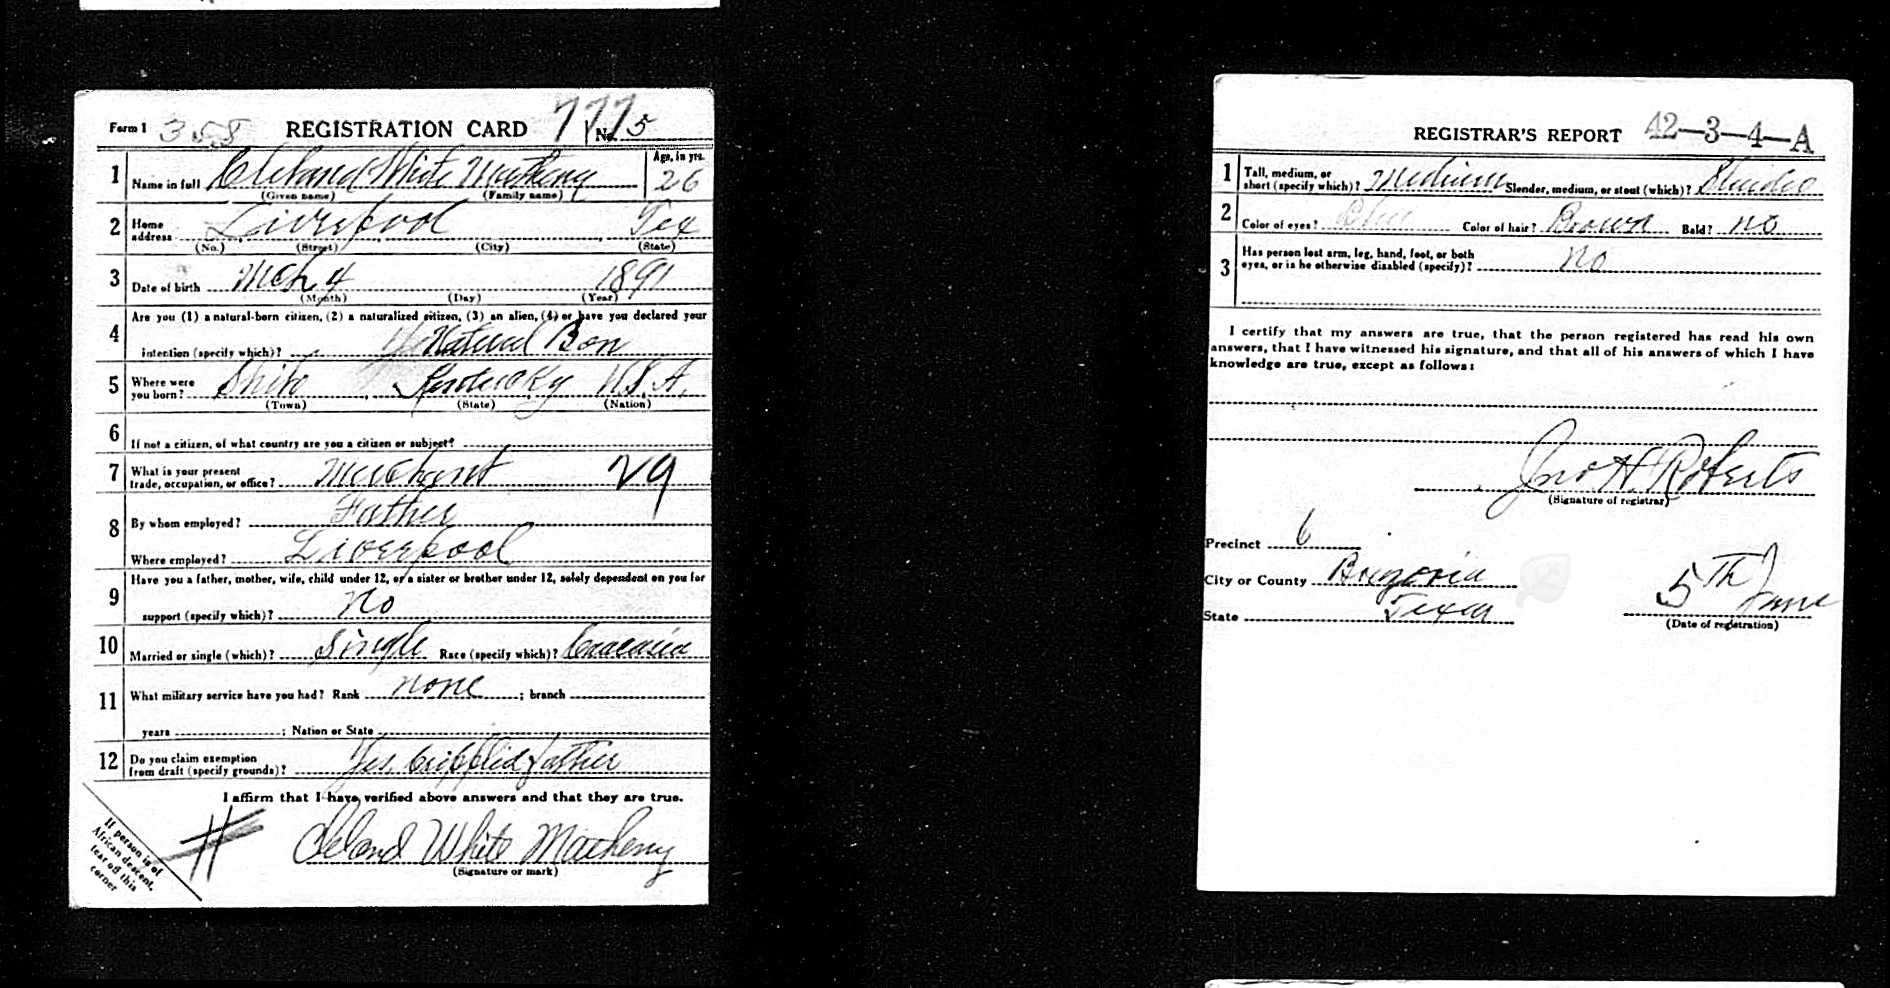 Form 1 358 REGISTRATION CARD 777 No. 5
1 Name in full Cleland White Matheny Age, in yrs. 26
(Given name) (Family name)
2 Home address Liverpool Tex
(No.) (Street) (City) (State)
3 Date of birth Mch 4 1891
(Month) (Day) (Year)
4 Are you (1) a natural-born citizen, (2) a naturalized citizen, (3) an alien, (4) or have you declared your
intention (specify which)? Natural Bon
5 Where were you born? Kentucky U.S.A.
(Town) (State) (Nation)
6 If not a citizen, of what country are you a citizen or subject?
7 What is your present trade, occupation, or office? Merchant 29
8 By whom employed? Father
Where employed? Liverpool
9 Have you a father, mother, wife, child under 12, or a sister or brother under 12, solely dependent on you for
support (specify which)? No
10 Married or single (which)? Single Race (specify which)? Caucasian
11 What military service have you had? Rank none ; branch
years ; Nation or State
12 Do you claim exemption from draft (specify grounds)? Yes, crippled father
I affirm that I have verified above answers and that they are true.
Cleland White Matheny
(Signature or mark)
If person is of
African descent,
tear off this
corner
REGISTRAR'S REPORT 42-3-4-A
1 Tall, medium, or short (specify which)? Medium Slender, medium, or stout (which)? Slender
2 Color of eyes? Blue Color of hair? Brown Bald? no
3 Has person lost arm, leg, hand, foot, or both eyes, or is he otherwise disabled (specify)? No
I certify that my answers are true, that the person registered has read his own
answers, that I have witnessed his signature, and that all of his answers of which I have
knowledge are true, except as follows:
Jno H. Roberts
(Signature of registrar)
Precinct 6
City or County Brazoria
State Texas
5TH June
(Date of registration)